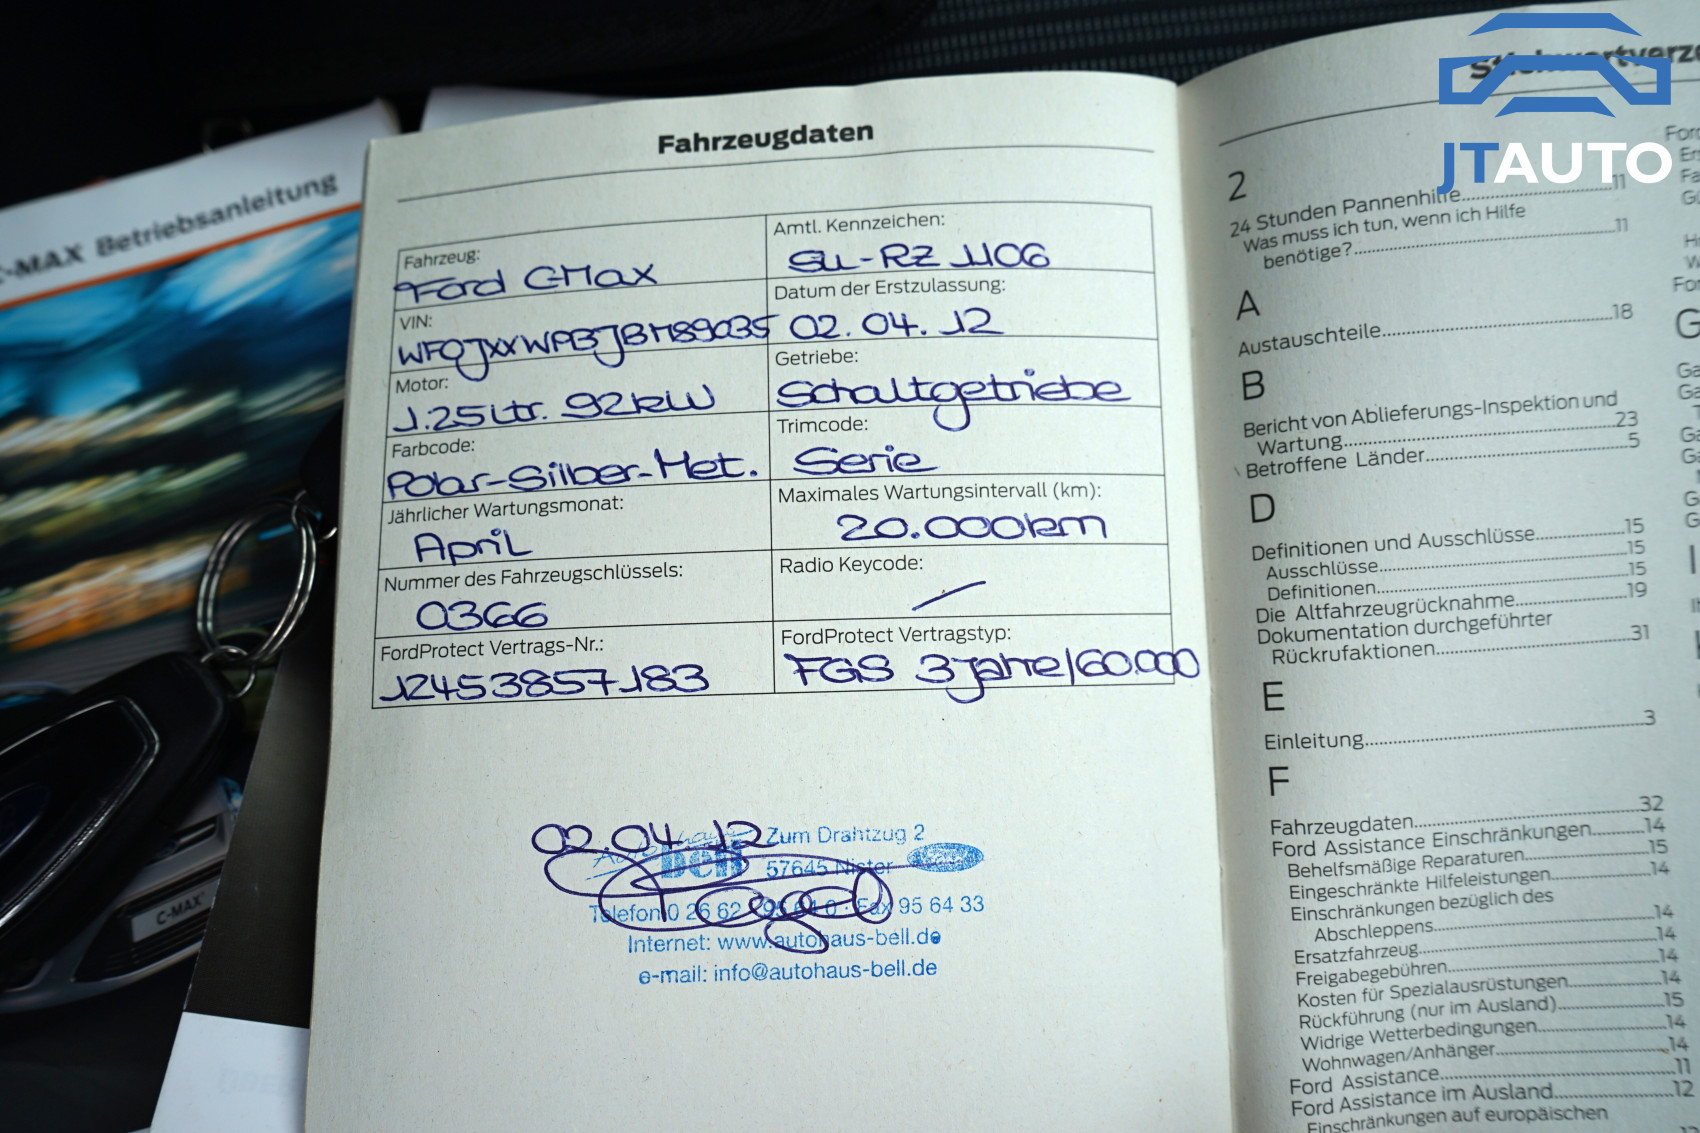 JTAUTO
C-MAX Betriebsanleitung
Fahrzeugdaten
Fahrzeug:
Ford C-Max
Amtl. Kennzeichen:
SU-RZ 1106
VIN:
Datum der Erstzulassung:
02.04.12
Motor:
1.25Ltr. 92kW
Getriebe:
Schaltgetriebe
Farbcode:
Polar-Silber-Met.
Trimcode:
Serie
Jährlicher Wartungsmonat:
April
Maximales Wartungsintervall (km):
20.000km
Nummer des Fahrzeugschlüssels:
0366
Radio Keycode:
FordProtect Vertrags-Nr.:
12453857183
FordProtect Vertragstyp:
FGS 3Jahre/60.000
02.04.12
Zum Drahtzug 2
Bell
57645 Nister
Telefon 0 26 62 Fax 95 64 33
Internet: www.autohaus-bell.de
e-mail: info@autohaus-bell.de
C-MAX
2
24 Stunden Pannenhilfe..........11
Was muss ich tun, wenn ich Hilfe
benötige?..........11
A
Austauschteile..........18
B
Bericht von Ablieferungs-Inspektion und
Wartung..........23
Betroffene Länder..........5
D
Definitionen und Ausschlüsse..........15
Ausschlüsse..........15
Definitionen..........15
Die Altfahrzeugrücknahme..........19
Dokumentation durchgeführter
Rückrufaktionen..........31
E
Einleitung..........3
F
Fahrzeugdaten..........32
Ford Assistance Einschränkungen..........14
Behelfsmäßige Reparaturen..........15
Eingeschränkte Hilfeleistungen..........14
Einschränkungen bezüglich des
Abschleppens..........14
Ersatzfahrzeug..........14
Freigabegebühren..........14
Kosten für Spezialausrüstungen..........14
Rückführung (nur im Ausland)..........15
Widrige Wetterbedingungen..........14
Wohnwagen/Anhänger..........14
Ford Assistance..........11
Ford Assistance im Ausland..........12
Einschränkungen auf europäischen